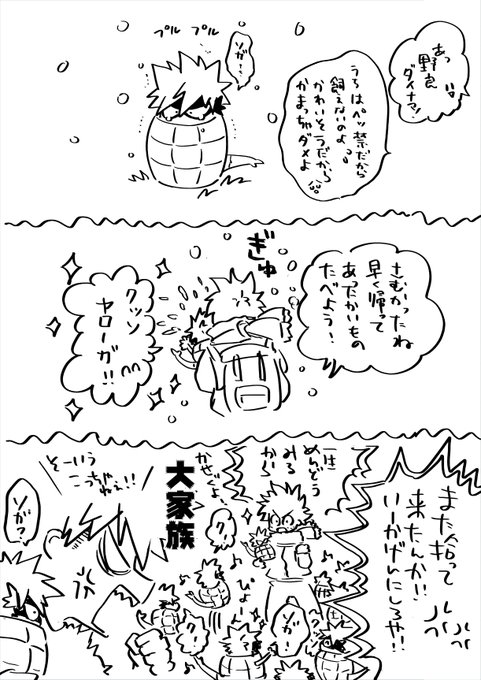 あっ
野良
ダイナマ!
うちはペッ禁だから
飼えないのよ
かわいそうだから
かまっちゃダメよ
ソガ?
プル プル
さむかったね
早く帰って
あったかいもの
たべよう!
ぎゅ
クッソ
ヤローが!!
また拾って
来たんか!!
いーかげんにしろや!!
一生
めんどう
みる
から!
かぜぐよ
大家族
そーいう
こっちゃねぇ!!
ソガ?
ク
ぴょーん
ソガ!
ク